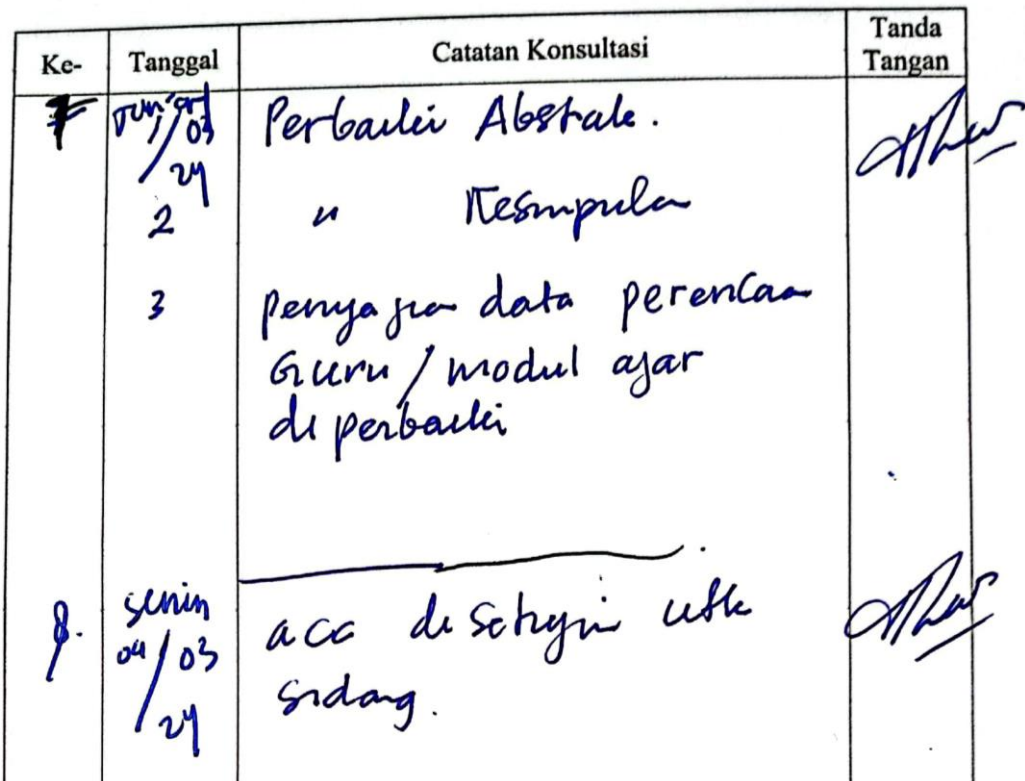 Ke- Tanggal Catatan Konsultasi Tanda Tangan
7 Jum'at 01/03/24 Perbaiki Abstrak.
2 " Kesimpulan
3 penyajian data perencaan
Guru / modul ajar
di perbaiki
8. senin 04/03/24 acc di setujui utk
sidang.